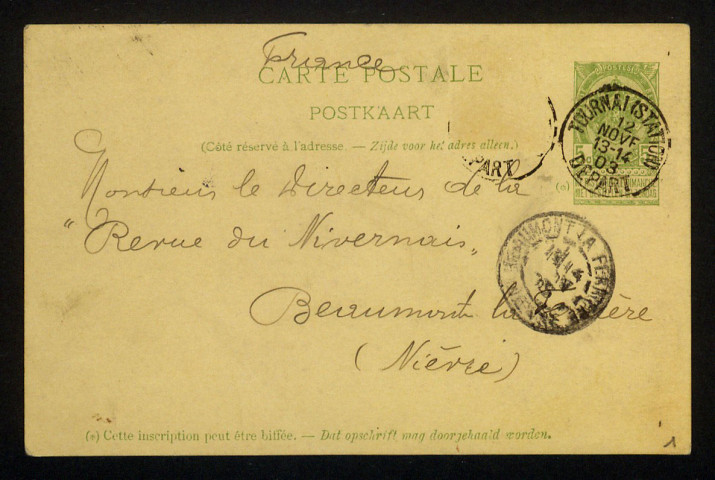 France
CARTE POSTALE
POSTKAART
(Côté réservé à l'adresse. — Zijde voor het adres alleen.)
TOURNAI (STATION)
12
NOVE
13-14
03
DEPART
5
(*)
PART
Monsieur le Directeur de la
"Revue du Nivernais"
BEAUMONT LA FERRIERE
Beaumont la Ferrière
(Nièvre)
(*) Cette inscription peut être biffée. — Dat opschrift mag doorgehaald worden.
1